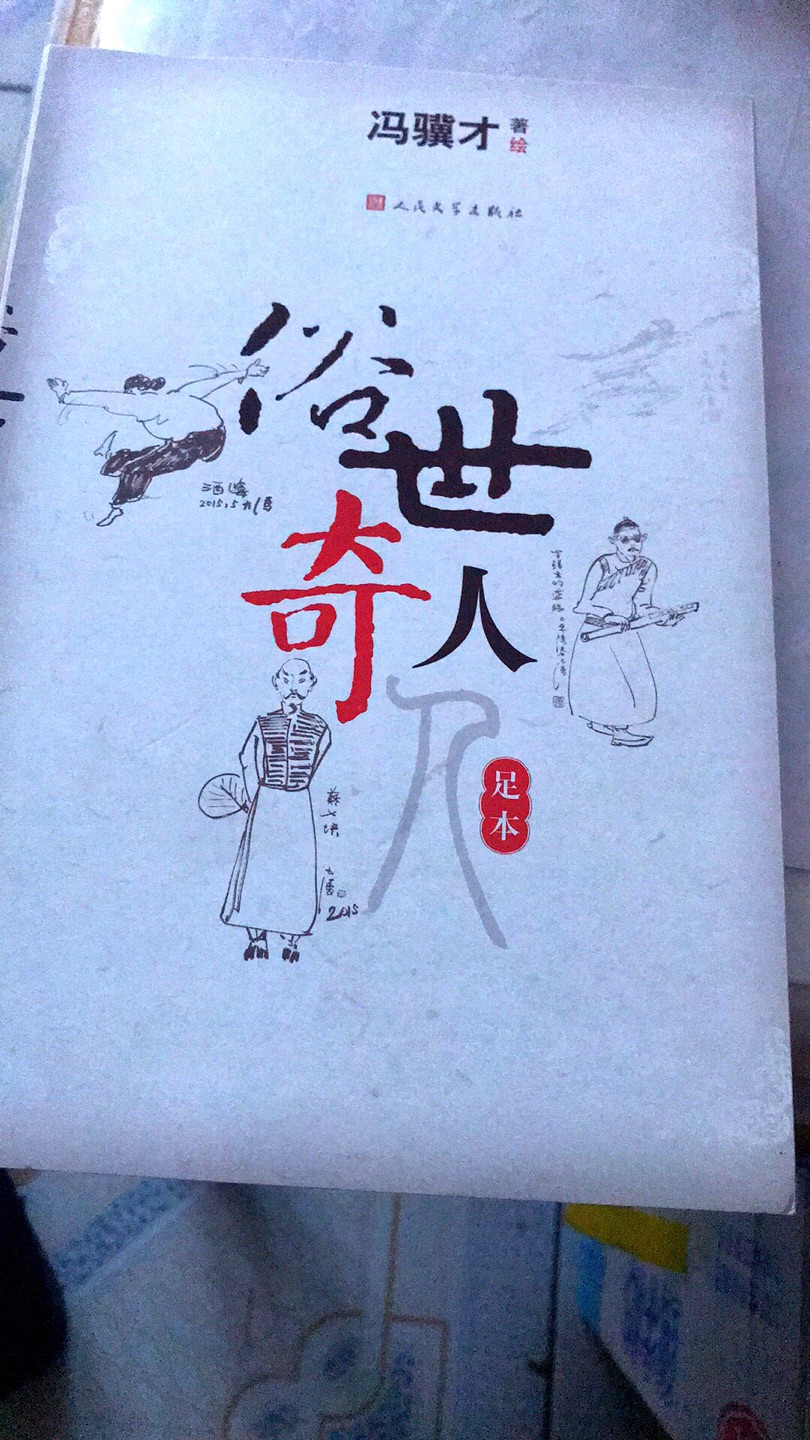 冯骥才 著
绘
人民文学出版社
俗世
奇人
足本
酒婆
2015.5 大冯
蘇七塊
大馮
2015